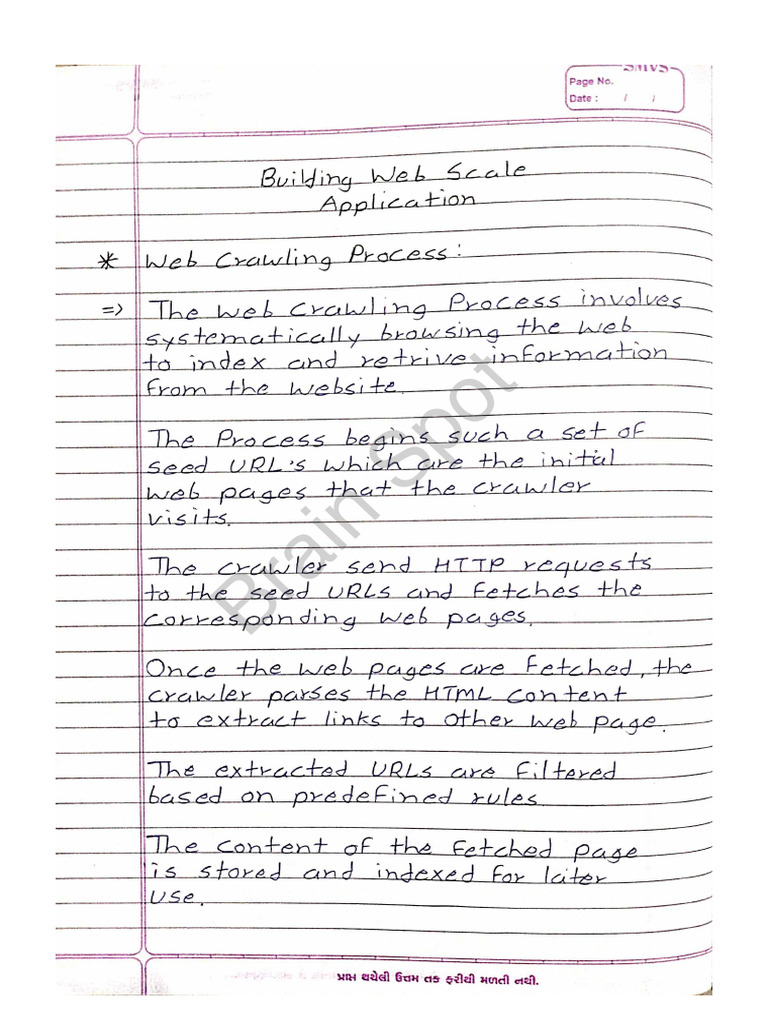 SMVS
Page No.
Date : / /
Building Web Scale
Application
* Web Crawling Process:
=> The Web Crawling Process involves
systematically browsing the web
to index and retrive information
from the website.
The Process begins such a set of
seed URL's which are the initial
web pages that the crawler
visits.
The crawler send HTTP requests
to the seed URLs and fetches the
corresponding web pages.
Once the web pages are fetched, the
crawler parses the HTML content
to extract links to other web page.
The extracted URLs are filtered
based on predefined rules.
The content of the fetched page
is stored and indexed for later
use.
Brain Spot
પ્રાપ્ત થયેલી ઉત્તમ તક ફરીથી મળતી નથી.